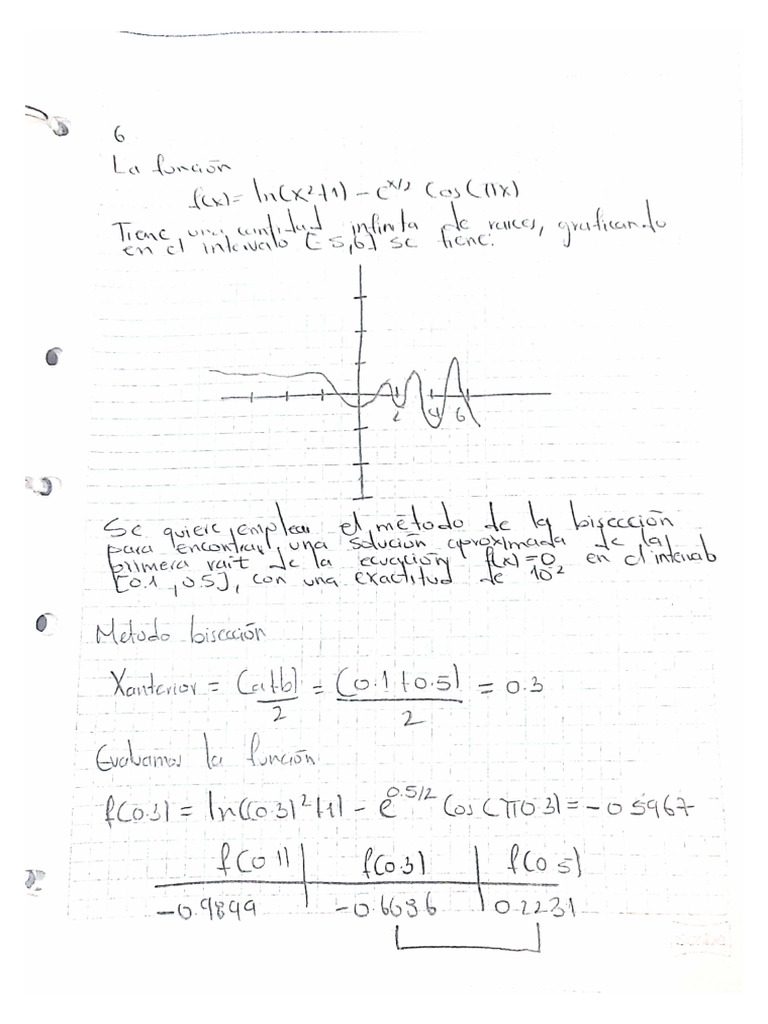 6
La función
f(x)= ln(x²+1) - e^x/2 Cos(πx)
Tiene una cantidad infinita de raices, graficando
en el intervalo [-5,6] se tiene:
2 4 6
Se quiere emplear el método de la bisección
para encontrar una solución aproximada de la
primera rait de la ecuación f(x)=0 en el intervalo
[0.1,0.5], con una exactitud de 10^-2
Metodo bisección
Xanterior = (a+b)/2 = (0.1+0.5)/2 = 0.3
Evaluamos la función
f(0.3) = ln((0.3)²+1) - e^0.5/2 Cos(π0.3) = -0.5967
f(0.1) | f(0.3) | f(0.5)
-0.9899 | -0.6636 | 0.2231